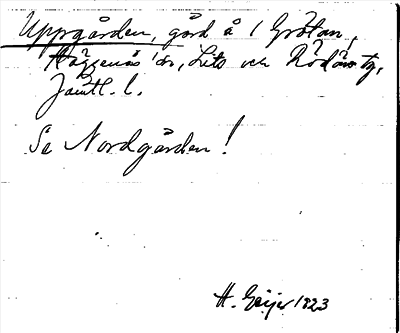 Uppgården, gård å 1 Grötan,
Häggenås sn, Lits och Rödöns tg,
Jämtl. l.
Se Nordgården!
H. Geijer 1923